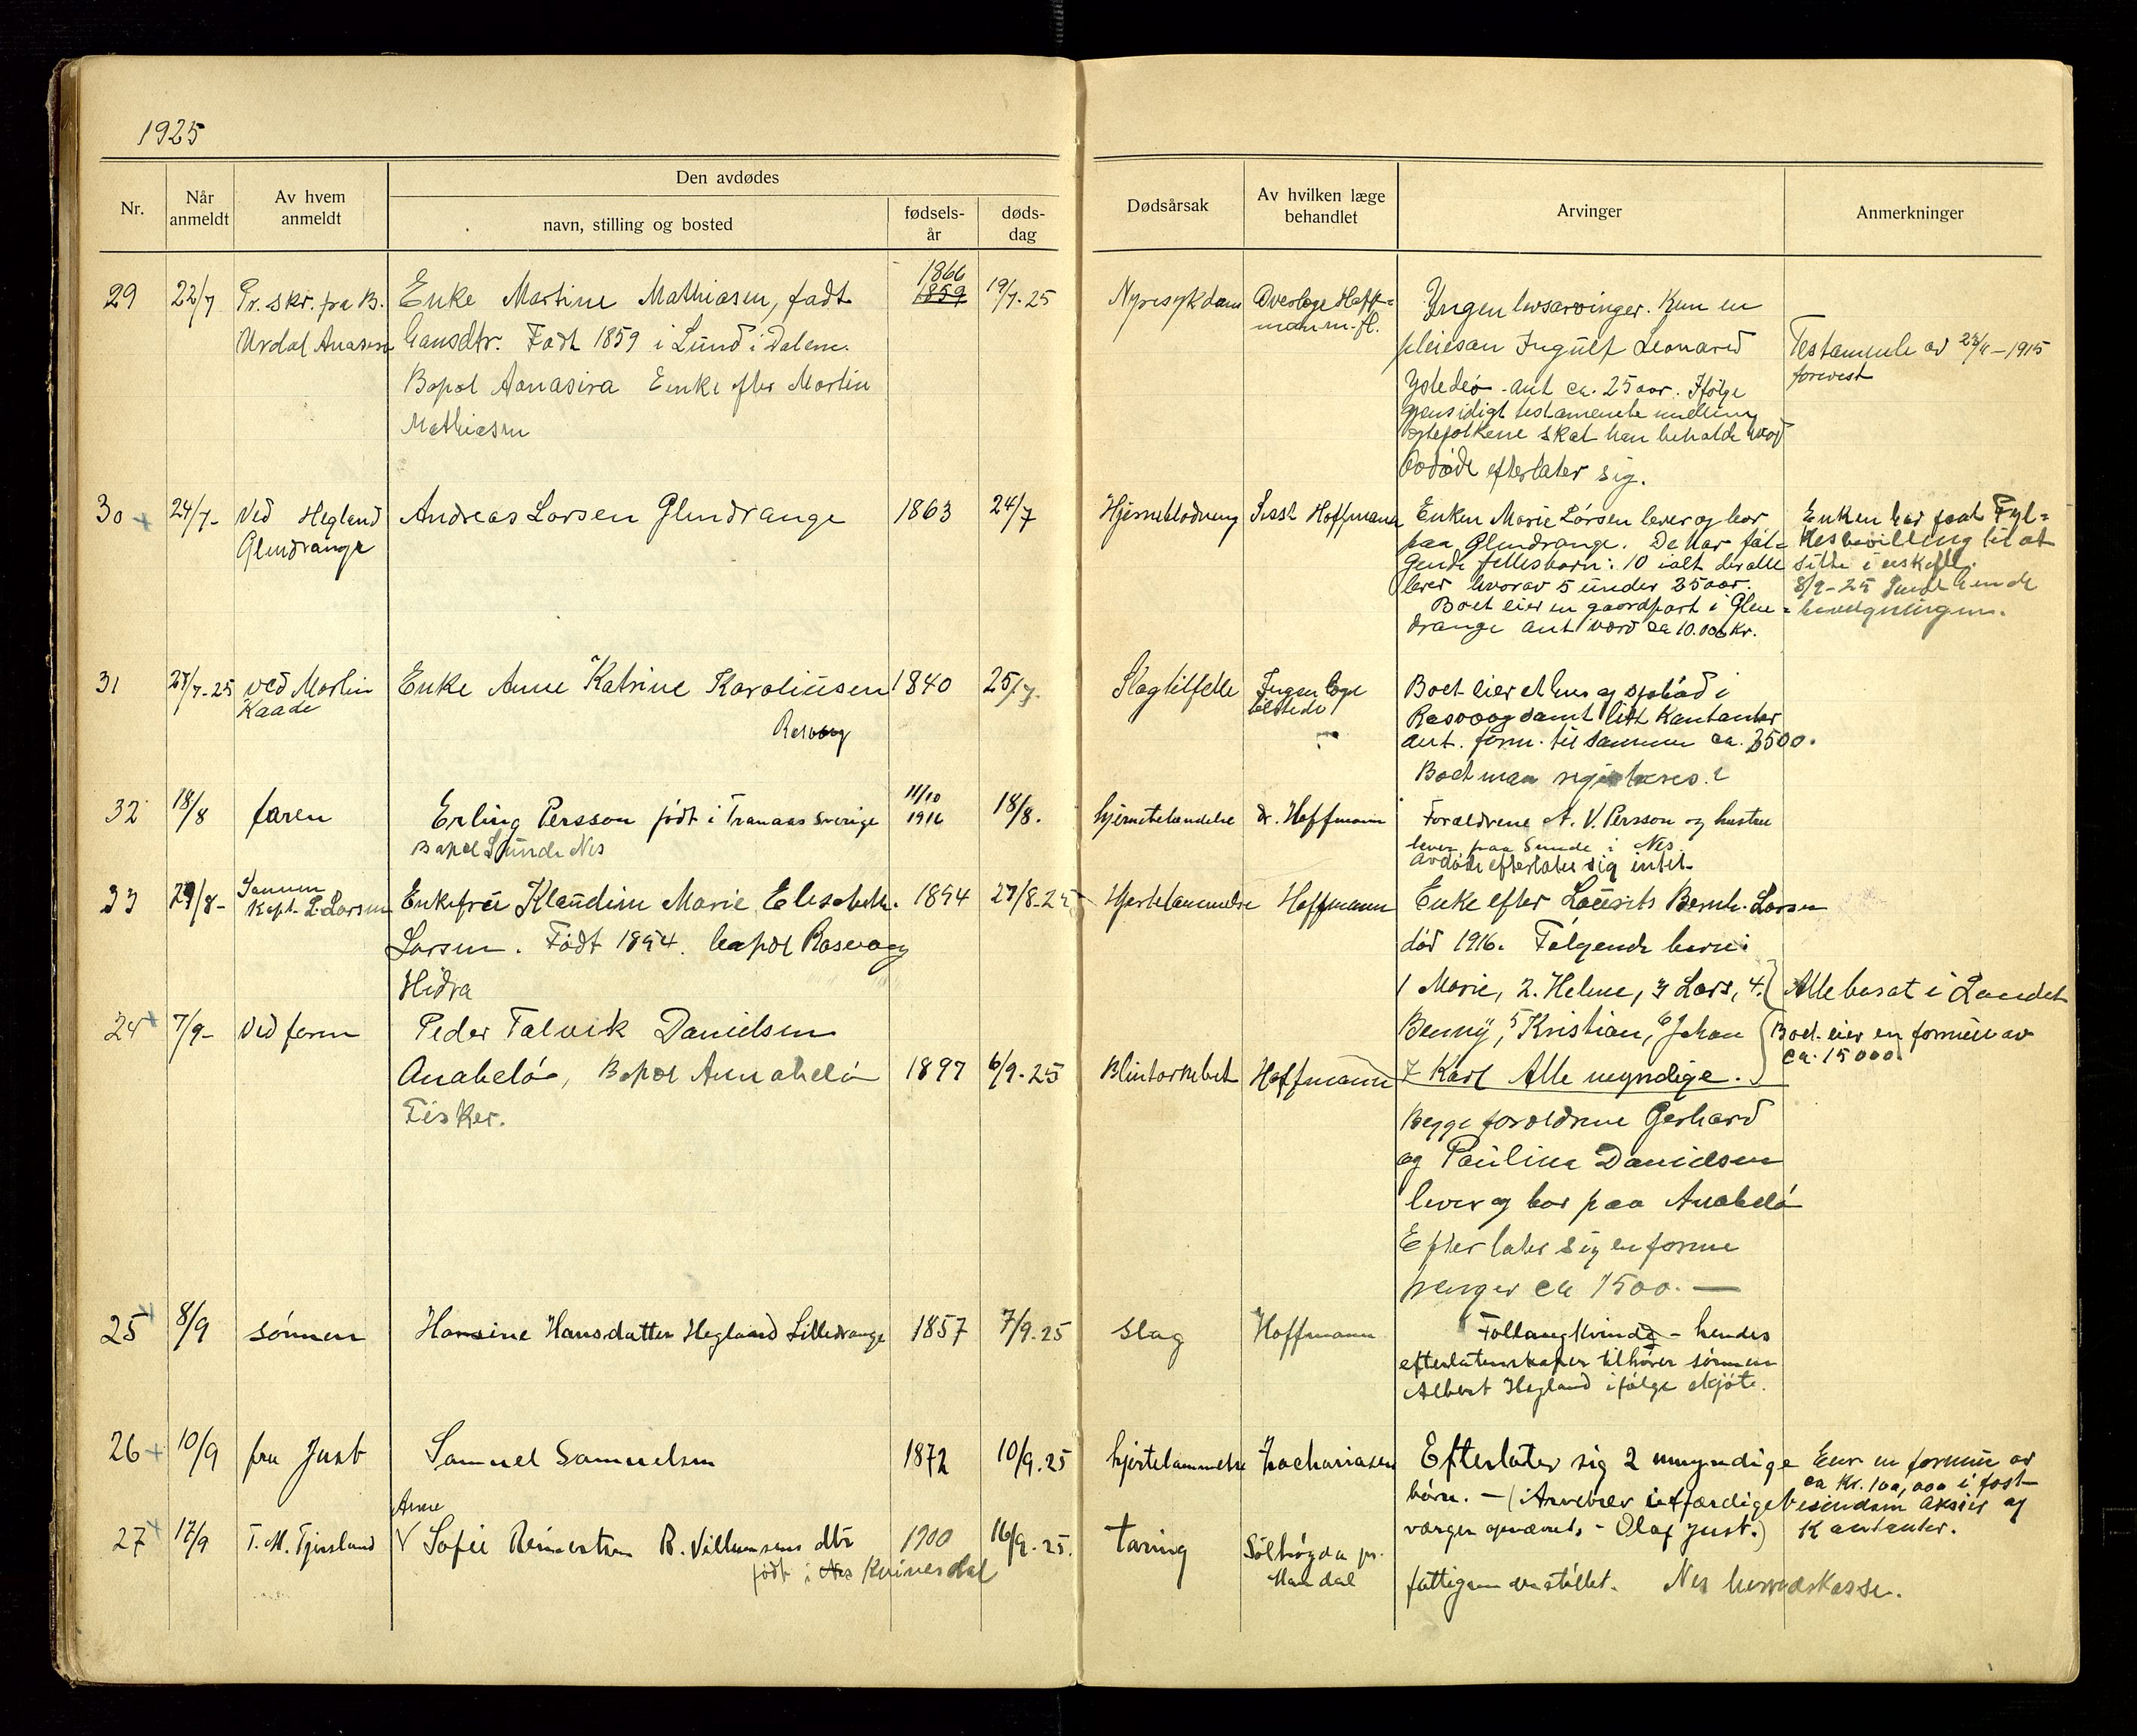 1925
Nr.
Når anmeldt
Av hvem anmeldt
Den avdødes
navn, stilling og bosted
fødsels-år
døds-dag
Dødsårsak
Av hvilken læge behandlet
Arvinger
Anmerkninger
29 22/7 Pr. skr. fra B. Enke Martine Mathiasen, født 1866 1859 19/7-25 Nyresykdom Overlæge Hoff=
Urdal Anasira Født 1859 i Lund i Dalene.
mann fl.
Bopæl Aanasira Enke efter Martin
Mathiasen
Ingen livsarvinger. Kun en
pleiesøn Ingulf Leonard
ant ca. 25 aar. Ifølge
gjensidigt testamente mellem
egtefolkene skal han beholde hvad
avdøde efterlater sig.
Testamente av 1915
forevist
30 24/7- Ved Hegland Andreas Larsen Glendrange 1863 24/7 Hjerneblødning Hoffmann
Glendrange
Enken Marie Larsen lever og bor
paa Glendrange. De har føl=
gende fellesbarn: 10 ialt der alle
lever hvorav 5 under 25 aar.
Boet eier en gaardpart i Glen=
drange ant værd ca 10.000 Kr.
Enken har faat Fyl=
kesbevilling til at
sitte i uskifte.
8/9-25 Sendt hende
bevilgningen.
31 27/7-25 ved Martin Enke Anne Katrine Karoliusen 1840 25/7- Slagtilfelle Ingen læge
Kaade
tilstede
Rasvaag
Boet eier et hus og sjøbod i
Rasvaag samt litt Kontanter
ant. form. til sammen ca. 3500.
Boet maa registreres.
32 18/8 faren Erling Persson født i Tranaas Sverige 11/10 1916 18/8. hjernebetændelse dr. Hoffmann
Bopæl Sunde Nes
Forældrene A. V. Persson og hustru
lever paa Sunde i Nes.
Avdøde efterlater sig intet.
33 29/8- Sønnen Enkefru Klaudine Marie Elisabeth 1854 27/8.25 Hjertelammelse Hoffmann
Kapt. L. Larsen
Larsen. Født 1854. bopæl Rasvaag
Hidra
Enke efter Laurits Bernh. Larsen
død 1916. Følgende barn:
1 Marie, 2. Helene, 3 Lars, 4.
Benny, 5 Kristian, 6 Johan
7 Karl Alle myndige.
Alle bosat i Landet
Boet eier en formue av
ca. 15000.
24 7/9- Ved faren Peder Talvik Danielsen
Anabeló, Bopæl Annabeló 1897 6/9-25 Blindtarmbet Hoffmann
Fisker.
Begge forældrene Gerhard
og Pauline Danielsen
lever og bor paa Anabeló
Efterlater sig en formue
penger ca 1500.—
25 8/9 sónnen Hansine Hansdatter Hegland Lilledrange 1857 7/9.25 slag Hoffmann
Føllaugkvinde - hendes
efterlatenskaper tilhører sønnen
Albert Hegland ifølge skjøte.
26 10/9 fru Just Samuel Samuelsen 1872 10/9.25 hjertelammelse Zachariasen
Efterlater sig 2 umyndige
børn. — (Arvebrev utfærdiget
værger opnævnt, - Olaf Just.)
Eier en formue av
ca Kr. 100,000 i fast
eiendom aksier og
Kontanter.
27 17/9 T. M. Tjersland Anne
Sofie Reinertsen R. Villumsens dtr 1900 16/9.25. tæring Sólhógda pr.
Mandal
født i Nes Kvinesdal
fattigunderstøttet. Nes herredskasse.